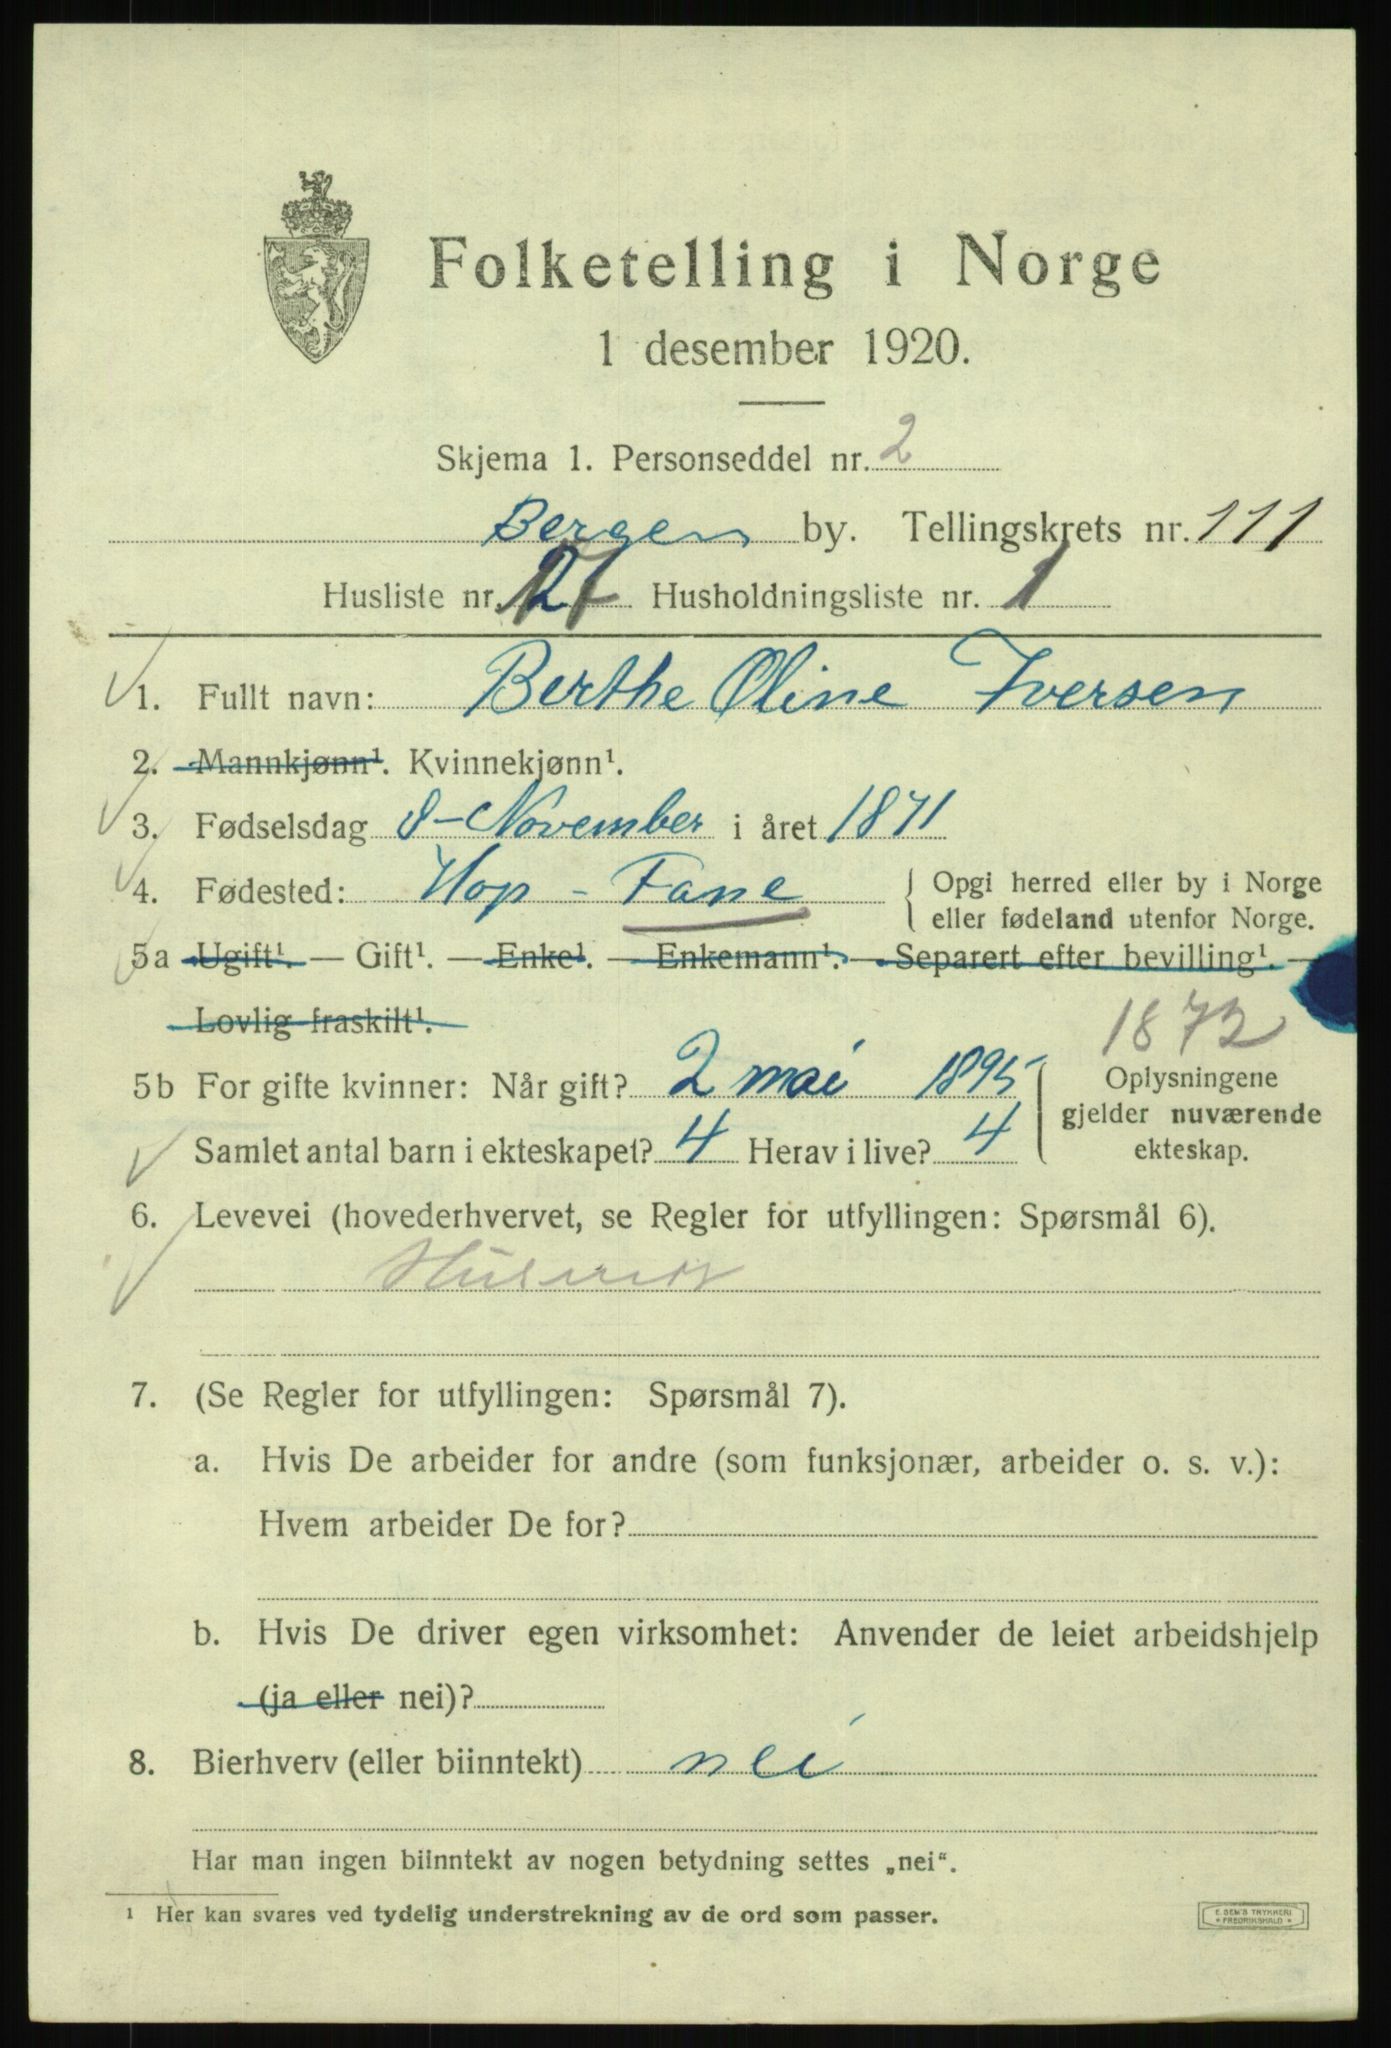 Folketelling i Norge
1 desember 1920.
Skjema 1. Personseddel nr. 2
Bergen by. Tellingskrets nr. 111
Husliste nr. 27 Husholdningsliste nr. 1
1. Fullt navn: Berthe Oline Iversen
2. Mannkjønn¹. Kvinnekjønn¹.
3. Fødselsdag 8-November i året 1871
4. Fødested: Hop - Fane { Opgi herred eller by i Norge
eller fødeland utenfor Norge.
5a Ugift¹. — Gift¹. — Enke¹. — Enkemann¹. — Separert efter bevilling¹. —
Lovlig fraskilt¹.
1872
5b For gifte kvinner: Når gift? 2 mai 1895 Oplysningene
gjelder nuværende
Samlet antal barn i ekteskapet? 4 Herav i live? 4 ekteskap.
6. Levevei (hovederhvervet, se Regler for utfyllingen: Spørsmål 6).
7. (Se Regler for utfyllingen: Spørsmål 7).
a. Hvis De arbeider for andre (som funksjonær, arbeider o. s. v.):
Hvem arbeider De for?
b. Hvis De driver egen virksomhet: Anvender de leiet arbeidshjelp
(ja eller nei)?
8. Bierhverv (eller biinntekt) nei
Har man ingen biinntekt av nogen betydning settes „nei“.
¹ Her kan svares ved tydelig understrekning av de ord som passer.
E. SEM'S TRYKKERI
* FREDRIKSHALD *